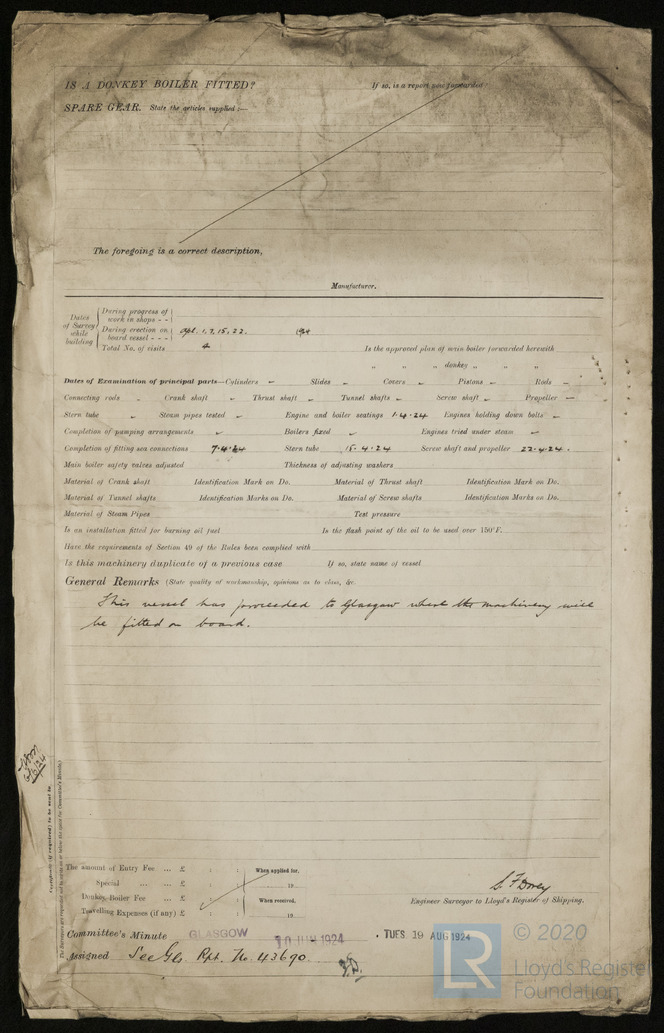 IS A DONKEY BOILER FITTED? If so, is a report now forwarded?
SPARE GEAR. State the articles supplied:—
The foregoing is a correct description,
Manufacturer.
Dates of Survey while building
During progress of work in shops - -
During erection on board vessel - - - Apl. 1, 7, 15, 22. 1924
Total No. of visits 4 Is the approved plan of main boiler forwarded herewith
" " donkey " " "
Dates of Examination of principal parts—Cylinders Slides Covers Pistons Rods
Connecting rods Crank shaft Thrust shaft Tunnel shafts Screw shaft Propeller
Stern tube Steam pipes tested Engine and boiler seatings 1·4·24 Engines holding down bolts
Completion of pumping arrangements Boilers fixed Engines tried under steam
Completion of fitting sea connections 7·4·24 Stern tube 15·4·24 Screw shaft and propeller 22·4·24.
Main boiler safety valves adjusted Thickness of adjusting washers
Material of Crank shaft Identification Mark on Do. Material of Thrust shaft Identification Mark on Do.
Material of Tunnel shafts Identification Marks on Do. Material of Screw shafts Identification Marks on Do.
Material of Steam Pipes Test pressure
Is an installation fitted for burning oil fuel Is the flash point of the oil to be used over 150°F.
Have the requirements of Section 49 of the Rules been complied with
Is this machinery duplicate of a previous case If so, state name of vessel
General Remarks (State quality of workmanship, opinions as to class, &c.
This vessel has proceeded to Glasgow where the machinery will
be fitted on board.
6/6/24
Certificate (if required) to be sent to
The Surveyors are requested not to write on or below the space for Committee's Minute.
The amount of Entry Fee ... £ : : When applied for,
Special ... ... £ : : 19
Donkey Boiler Fee ... £ : : When received,
Travelling Expenses (if any) £ : : 19
S. F. Dorey
Engineer Surveyor to Lloyd's Register of Shipping.
Committee's Minute GLASGOW 10 JUN 1924 TUES 19 AUG 1924
Assigned See Gls. Rpt. No. 43690
LR © 2020
Lloyd's Register
Foundation